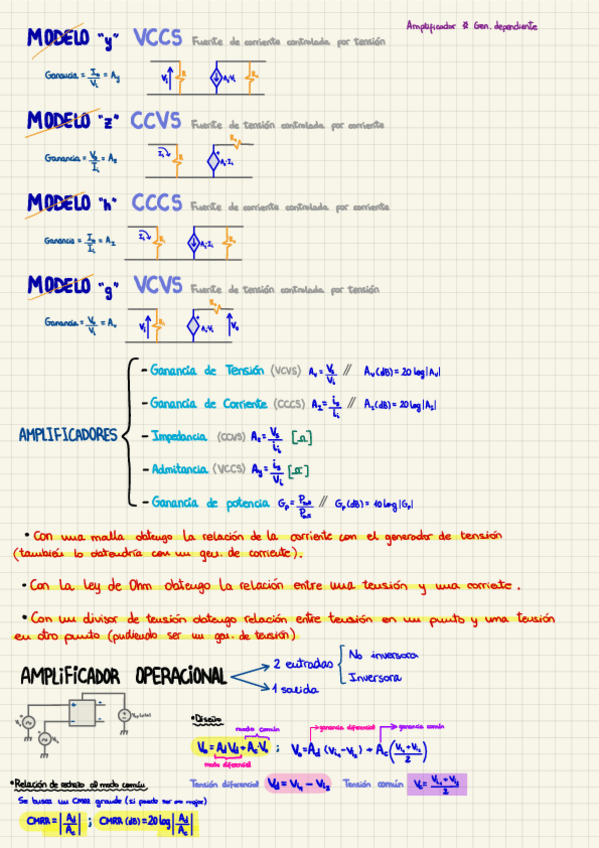 Amplificador ≠ Gen. dependiente
MODELO "y" VCCS Fuente de corriente controlada por tensión
Ganancia = Io/Vi = Ay
Vi Ay·Vi
MODELO "z" CCVS Fuente de tensión controlada por corriente
Ganancia = Vo/Ii = Az
Ii Az·Ii
MODELO "h" CCCS Fuente de corriente controlada por corriente
Ganancia = Io/Ii = AI
Ii AI·Ii
MODELO "g" VCVS Fuente de tensión controlada por tensión
Ganancia = Vo/Vi = Av
Vi Av·Vi Vo
AMPLIFICADORES
- Ganancia de Tensión (VCVS) Av = Vo/Vi // Av(dB) = 20 log|Av|
- Ganancia de Corriente (CCCS) AI = io/ii // AI(dB) = 20 log|AI|
- Impedancia (CCVS) Az = Vo/ii [Ω]
- Admitancia (VCCS) Ay = io/Vi
- Ganancia de potencia Gp = // Gp(dB) = 10 log|Gp|
• Con una malla obtengo la relación de la corriente con el generador de tensión
(también lo obtendría con un gen. de corriente).
• Con la ley de Ohm obtengo la relación entre una tensión y una corriente.
• Con un divisor de tensión obtengo relación entre tensión en un punto y una tensión
en otro punto (pudiendo ser un gen. de tensión)
AMPLIFICADOR OPERACIONAL
2 entradas
No inversora
Inversora
1 salida
• Diseño
modo común
ganancia diferencial
ganancia común
Vo = Ad Vd + Ac Vc ; Vo = Ad (Vi1 - Vi2) + Ac (Vi1 + Vi2 / 2)
modo diferencial
• Relación de rechazo al modo común
Tensión diferencial Vd = Vi1 - Vi2 Tensión común Vc = Vi1 + Vi2 / 2
Se busca un CMRR grande (si puede ser mejor)
CMRR = |Ad/Ac| ; CMRR (dB) = 20 log|Ad/Ac|